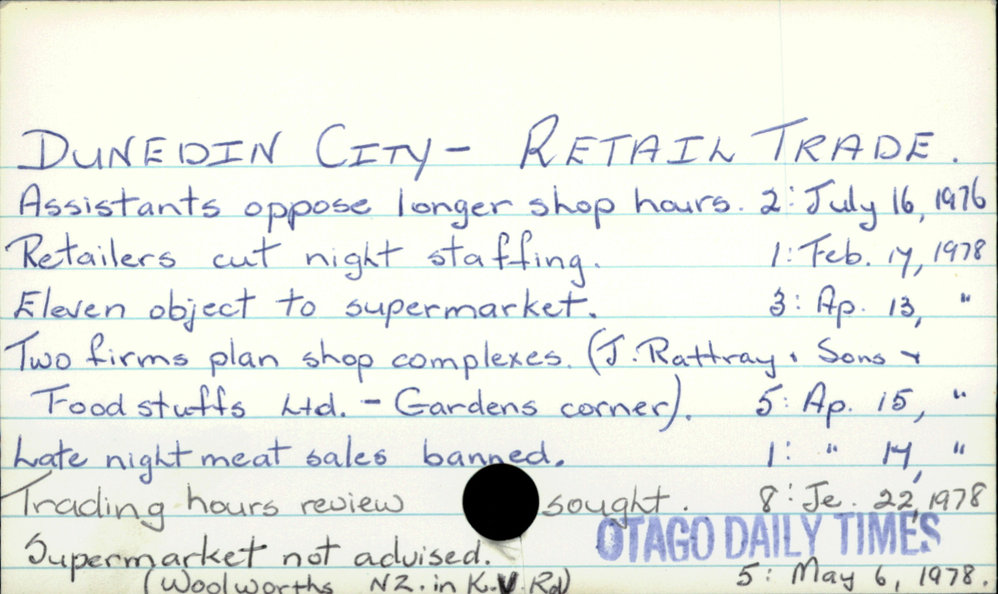 DUNEDIN CITY - RETAIL TRADE.
Assistants oppose longer shop hours. 2: July 16, 1976
Retailers cut night staffing. 1: Feb. 17, 1978
Eleven object to supermarket. 3: Ap. 13, "
Two firms plan shop complexes. (J. Rattray & Sons &
Foodstuffs Ltd. - Gardens corner). 5: Ap. 15, "
Late night meat sales banned. 1: " 14, "
Trading hours review sought. 8: Je. 22, 1978
OTAGO DAILY TIMES
Supermarket not advised.
(Woolworths NZ. in K.V. Rd) 5: May 6, 1978.